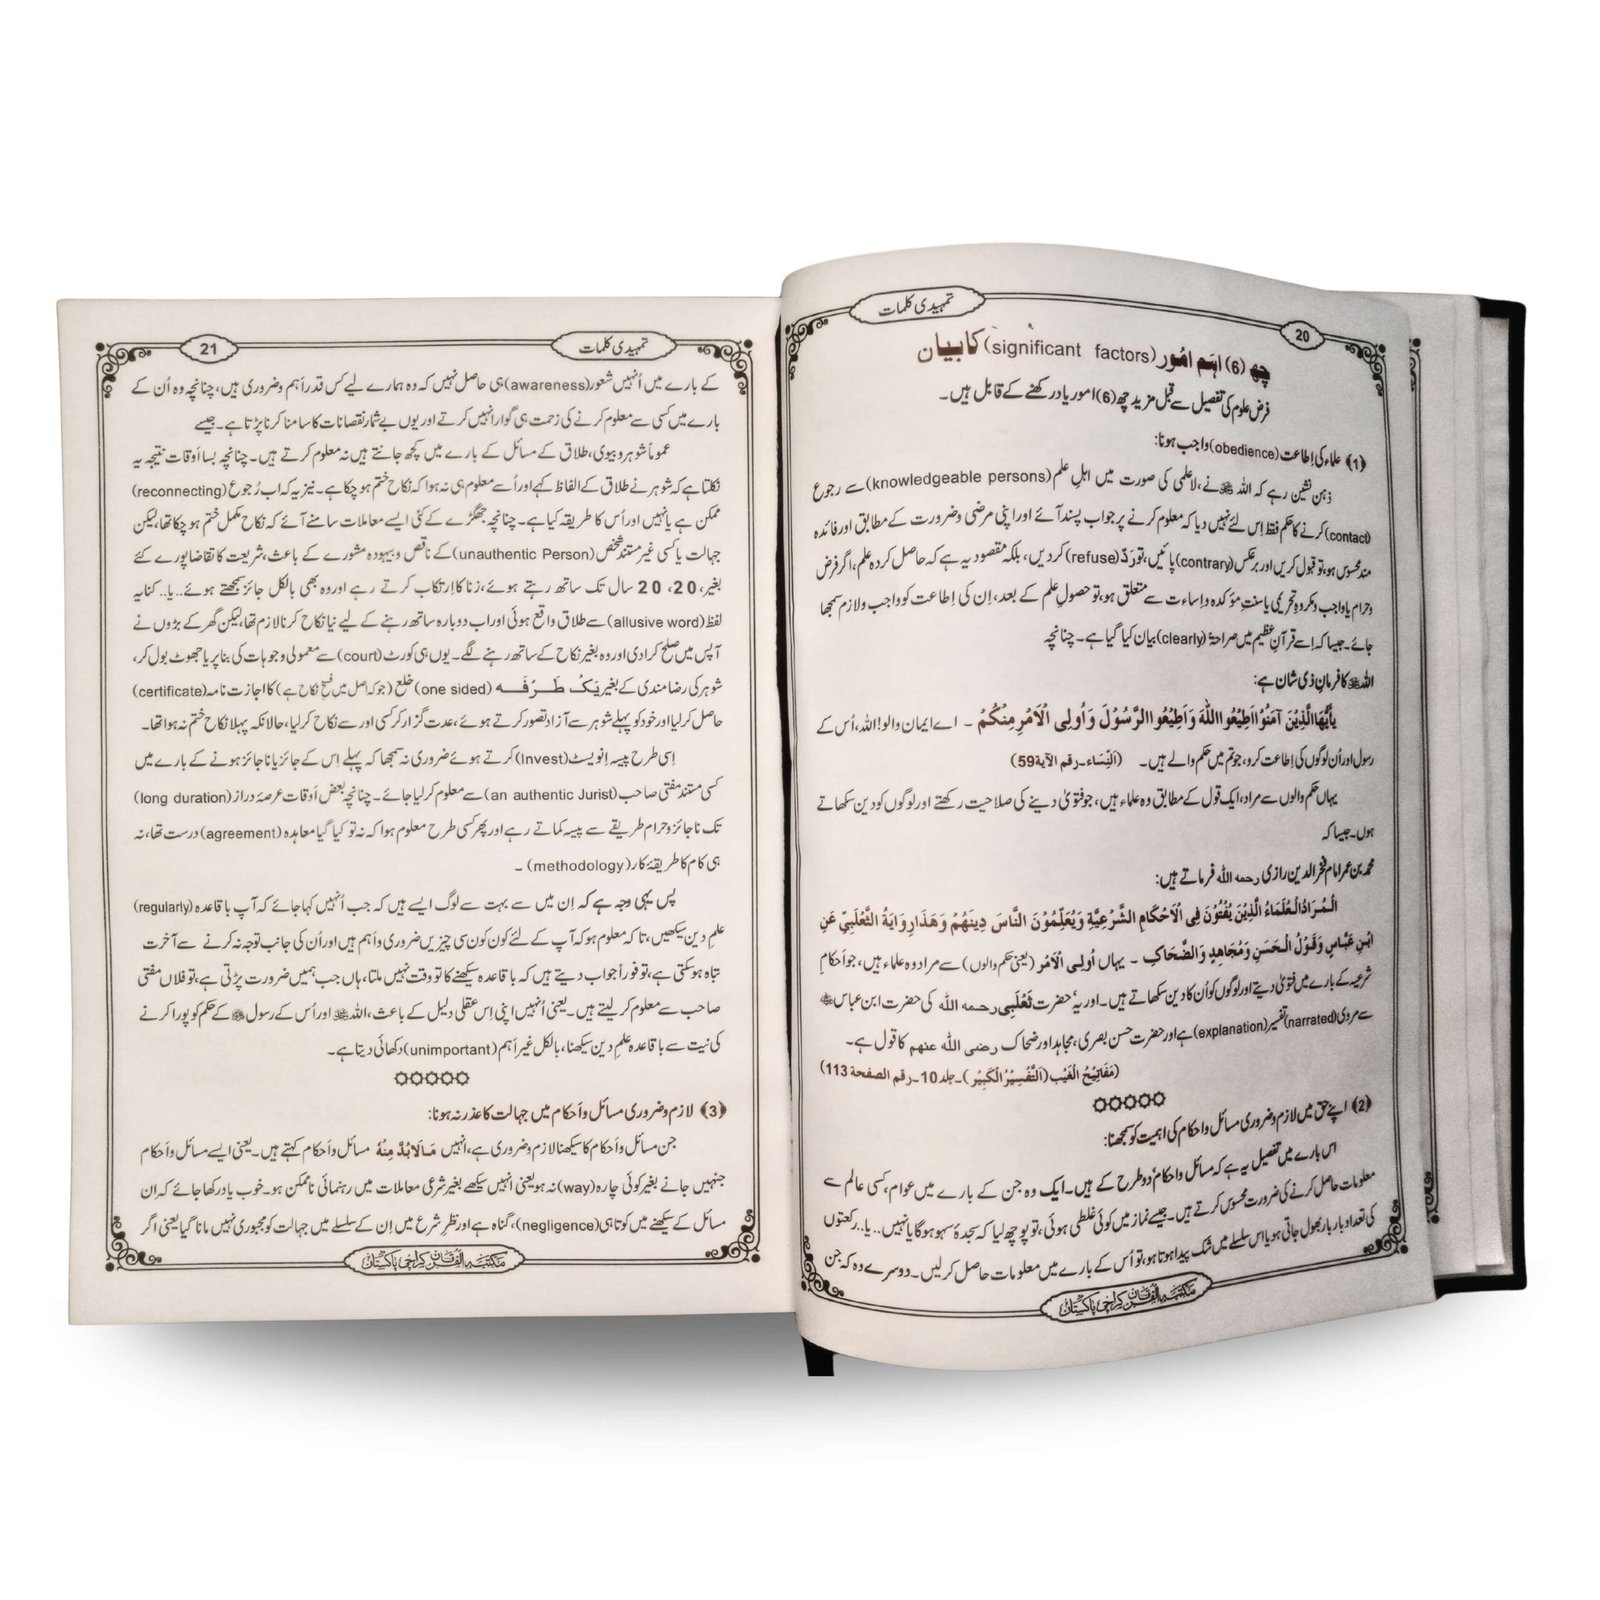 تمہیدی کلمات
20
چھ (6) اہم امُور (significant factors) کا بیان
فرض علوم کی تفصیل سے قبل مزید چھ (6) امور یاد رکھنے کے قابل ہیں۔
﴿1﴾ علماء کی اِطاعت (obedience) واجب ہونا:
ذہن نشین رہے کہ اللہ ﷻ نے، لاعلمی کی صورت میں اہلِ علم (knowledgeable persons) سے رجوع
(contact) کرنے کا حکم فقط اِس لئے نہیں دیا کہ معلوم کرنے پر جواب پسند آئے اور اپنی مرضی وضرورت کے مطابق اور فائدہ
مند محسوس ہو، تو قبول کریں اور برعکس (contrary) پائیں، تو رَدّ (refuse) کر دیں، بلکہ مقصود یہ ہے کہ حاصل کردہ علم، اگر فرض
وحرام یا واجب ومکروہِ تحریمی یا سنتِ مؤکدہ واِساءت سے متعلق ہو، تو حصولِ علم کے بعد، اِن کی اِطاعت کو واجب ولازم سمجھا
جائے۔ جیسا کہ اِسے قرآنِ عظیم میں صراحۃً (clearly) بیان کیا گیا ہے۔ چنانچہ
اللہ ﷻ کا فرمانِ ذی شان ہے:
یٰٓاَیُّهَا الَّذِیْنَ آمَنُوْا اَطِیْعُوا اللّٰهَ وَ اَطِیْعُوا الرَّسُوْلَ وَ اُولِی الْاَمْرِ مِنْکُمْ ۔ اے ایمان والو! اللہ، اُس کے
رسول اور اُن لوگوں کی اِطاعت کرو، جو تم میں حکم والے ہیں۔ (اَلنِّسَاء۔ رقم الآیۃ 59)
یہاں حکم والوں سے مراد، ایک قول کے مطابق وہ علماء ہیں، جو فتویٰ دینے کی صلاحیت رکھتے اور لوگوں کو دین سکھاتے
ہوں۔ جیسا کہ
محمد بن عمر امام فخر الدین رازی رحمہ اللہ فرماتے ہیں:
اَلْمُرَادُ الْعُلَمَاءُ الَّذِیْنَ یُفْتُوْنَ فِی الْاَحْکَامِ الشَّرْعِیَّةِ وَ یُعَلِّمُوْنَ النَّاسَ دِیْنَهُمْ وَ هٰذَا رِوَایَةُ الثَّعْلَبِیِّ عَنِ
ابْنِ عَبَّاسٍ وَ قَوْلُ الْحَسَنِ وَ مُجَاهِدٍ وَ الضَّحَّاکِ ۔ یہاں اُولِی الْاَمْر (یعنی حکم والوں) سے مراد وہ علماء ہیں، جو اَحکامِ
شرعیہ کے بارے میں فتویٰ دیتے اور لوگوں کو اُن کا دین سکھاتے ہیں۔ اور یہ حضرت ثَعْلَبِی رحمہ اللہ کی حضرت ابن عباس ﷺ
سے مروی (narrated) تفسیر (explanation) ہے اور حضرت حسن بصری، مجاہد اور ضحاک رضی اللہ عنہم کا قول ہے۔
(مَفَاتِیْحُ الْغَیْب (اَلتَّفْسِیْرُ الْکَبِیْر)۔ جلد 10۔ رقم الصفحۃ 113)
﴿2﴾ اپنے حق میں لازم وضروری مسائل واحکام کی اہمیت کو سمجھنا:
اس بارے میں تفصیل یہ ہے کہ مسائل واحکام دو طرح کے ہیں۔ ایک وہ جن کے بارے میں عوام، کسی عالم سے
معلومات حاصل کرنے کی ضرورت محسوس کرتے ہیں۔ جیسے نماز میں کوئی غلطی ہوئی، تو پوچھ لیا کہ سجدۂ سہو ہوگا یا نہیں .. یا .. رکعتوں
کی تعداد بار بار بھول جاتی ہو یا اس سلسلے میں شک پیدا ہوتا ہو، تو اُس کے بارے میں معلومات حاصل کر لیں۔ دوسرے وہ کہ جن
مکتبۃ الفرقان کراچی پاکستان
تمہیدی کلمات
21
کے بارے میں اُنہیں شعور (awareness) ہی حاصل نہیں کہ وہ ہمارے لیے کس قدر اَہم وضروری ہیں، چنانچہ وہ اُن کے
بارے میں کسی سے معلوم کرنے کی زحمت ہی گوارا نہیں کرتے اور یوں بے شمار نقصانات کا سامنا کرنا پڑتا ہے۔ جیسے
عموماً شوہر و بیوی، طلاق کے مسائل کے بارے میں کچھ جانتے ہیں نہ معلوم کرتے ہیں۔ چنانچہ بسا اَوقات نتیجہ یہ
نکلتا ہے کہ شوہر نے طلاق کے الفاظ کہے اور اُسے معلوم ہی نہ ہوا کہ نکاح ختم ہو چکا ہے۔ نیز یہ کہ اب رُجوع (reconnecting)
ممکن ہے یا نہیں اور اُس کا طریقہ کیا ہے۔ چنانچہ جھگڑے کے کئی ایسے معاملات سامنے آئے کہ نکاح مکمل ختم ہو چکا تھا، لیکن
جہالت یا کسی غیر مستند شخص (unauthentic Person) کے ناقص و بیہودہ مشورے کے باعث، شریعت کا تقاضا پورے کئے
بغیر، 20، 20 سال تک ساتھ رہتے ہوئے، زنا کا اِرتکاب کرتے رہے اور وہ بھی بالکل جائز سمجھتے ہوئے .. یا .. کنایہ
لفظ (allusive word) سے طلاق واقع ہوئی اور اب دوبارہ ساتھ رہنے کے لیے نیا نکاح کرنا لازم تھا، لیکن گھر کے بڑوں نے
آپس میں صلح کرا دی اور وہ بغیر نکاح کے ساتھ رہنے لگے۔ یوں ہی کورٹ (court) سے معمولی وجوہات کی بنا پر یا جھوٹ بول کر،
شوہر کی رضا مندی کے بغیر یَک طَرْفَہ (one sided) خلع (جو کہ اصل میں فسخِ نکاح ہے) کا اجازت نامہ (certificate)
حاصل کر لیا اور خود کو پہلے شوہر سے آزاد تصور کرتے ہوئے، عدت گزار کر کسی اور سے نکاح کر لیا، حالانکہ پہلا نکاح ختم نہ ہوا تھا۔
اِسی طرح پیسہ اِنویسٹ (Invest) کرتے ہوئے ضروری نہ سمجھا کہ پہلے اِس کے جائز یا ناجائز ہونے کے بارے میں
کسی مستند مفتی صاحب (an authentic Jurist) سے معلوم کر لیا جائے۔ چنانچہ بعض اَوقات عرصۂ دراز (long duration)
تک ناجائز و حرام طریقے سے پیسہ کماتے رہے اور پھر کسی طرح معلوم ہوا کہ نہ تو کیا گیا معاہدہ (agreement) درست تھا، نہ
ہی کام کا طریقۂ کار (methodology) ۔
پس یہی وجہ ہے کہ اِن میں سے بہت سے لوگ ایسے ہیں کہ جب اُنہیں کہا جائے کہ آپ باقاعدہ (regularly)
علمِ دین سیکھیں، تا کہ معلوم ہو کہ آپ کے لئے کون کون سی چیزیں ضروری و اَہم ہیں اور اُن کی جانب توجہ نہ کرنے سے آخرت
تباہ ہو سکتی ہے، تو فوراً جواب دیتے ہیں کہ باقاعدہ سیکھنے کا تو وقت نہیں ملتا، ہاں جب ہمیں ضرورت پڑتی ہے، تو فلاں مفتی
صاحب سے معلوم کر لیتے ہیں۔ یعنی اُنہیں اپنی اِس عقلی دلیل کے باعث، اللہ ﷻ اور اُس کے رسول ﷺ کے حکم کو پورا کرنے
کی نیت سے باقاعدہ علمِ دین سیکھنا، بالکل غیر اَہم (unimportant) دکھائی دیتا ہے۔
﴿3﴾ لازم و ضروری مسائل و اَحکام میں جہالت کا عذر نہ ہونا:
جن مسائل و اَحکام کا سیکھنا لازم و ضروری ہے، انہیں مَا لَا بُدَّ مِنْهُ مسائل و اَحکام کہتے ہیں۔ یعنی ایسے مسائل و اَحکام
جنہیں جانے بغیر کوئی چارہ (way) نہ ہو یعنی انہیں سیکھے بغیر شرعی معاملات میں رہنمائی ناممکن ہو۔ خوب یاد رکھا جائے کہ اِن
مسائل کے سیکھنے میں کوتاہی (negligence)، گناہ ہے اور نظرِ شرع میں اِن کے سلسلے میں جہالت کو مجبوری نہیں مانا گیا یعنی اگر
مکتبۃ الفرقان کراچی پاکستان